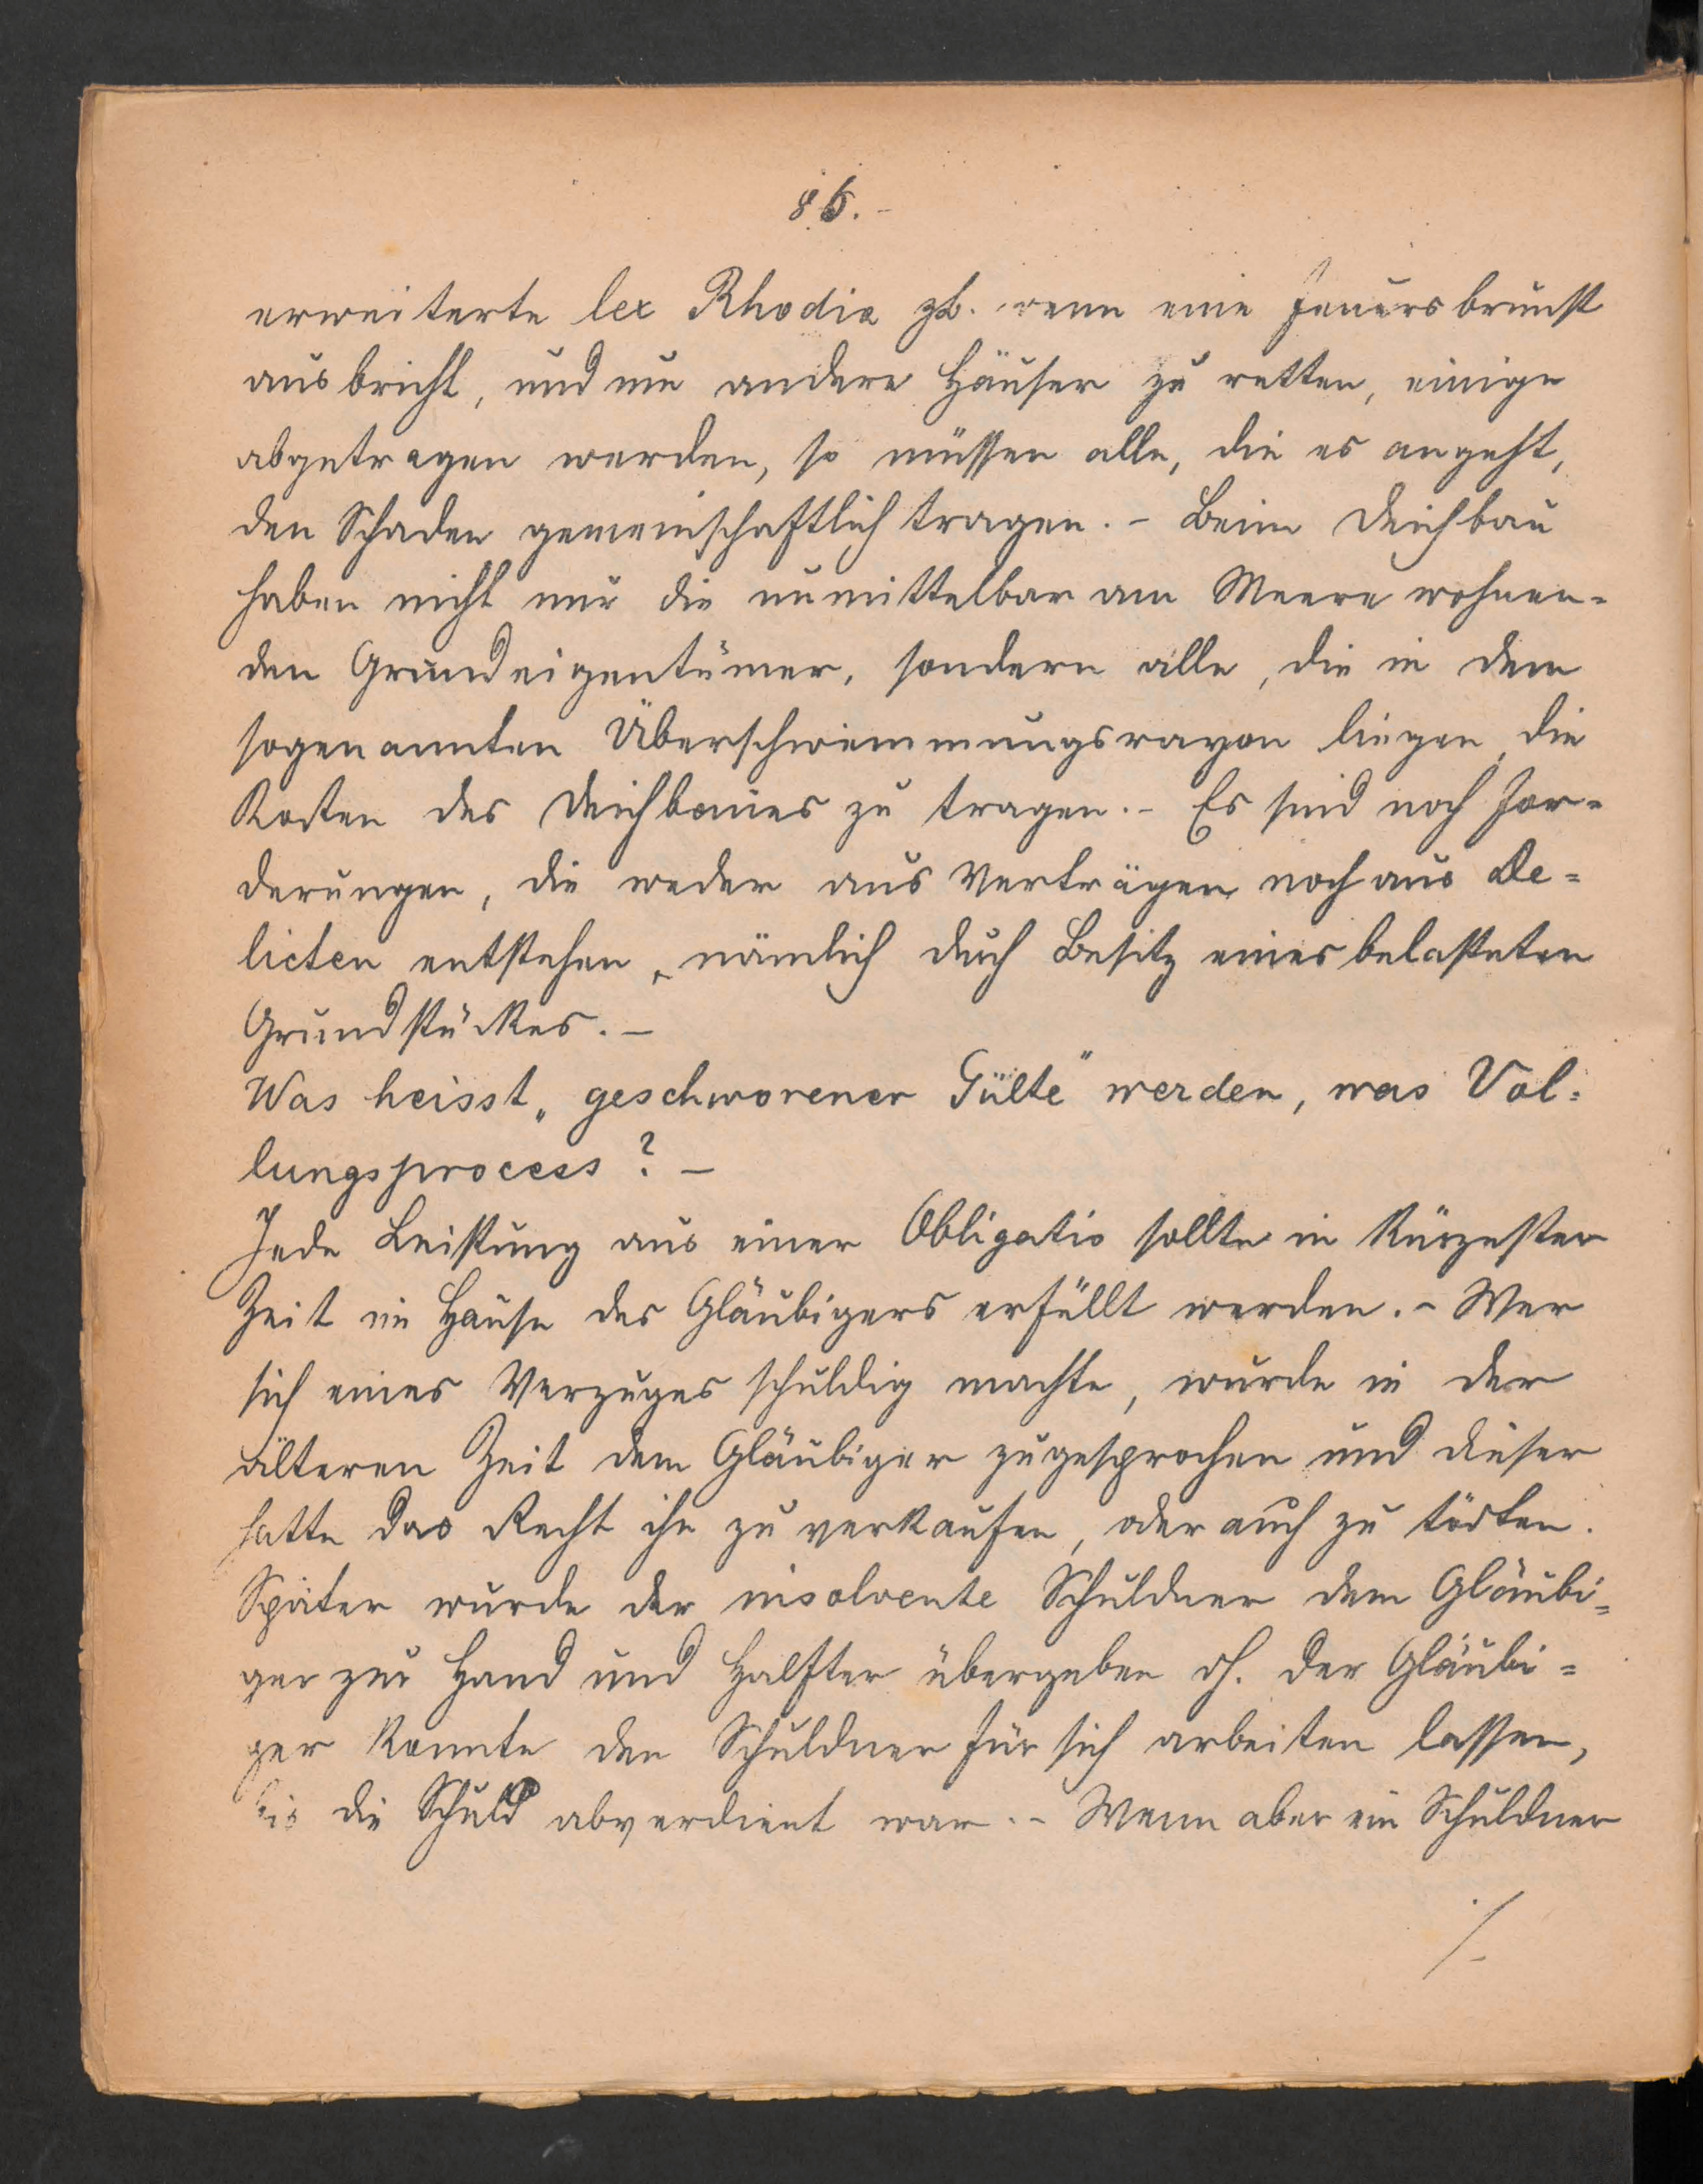 86.-
erweiterte lex Rhodia zb. wenn eine Feuersbrunst
ausbricht, und um andere Häuser zu retten, einige
abgetragen werden, so müssen alle, die es angeht,
den Schaden gemeinschaftlich tragen. - Beim Deichbau
haben nicht nur die unmittelbar am Meere wohnen=
den Grundeigentümer, sondern alle, die in dem
sogenannten Überschwemmungsrayon liegen, die
Kosten des Deichbaues zu tragen. - Es sind noch For=
derungen, die weder aus Verträgen noch aus De=
licten entstehen, nämlich durch Besitz eines belasteten
Grundstückes. -
Was heisst „geschworener Gülte" werden, was Vol=
lungsprocess? -
Jede Leistung aus einer Obligatio sollte in kürzester
Zeit im Hause des Gläubigers erfüllt werden. - Wer
sich eines Verzuges schuldig machte, wurde in der
älteren Zeit dem Gläubiger zugesprochen und dieser
hatte das Recht ihn zu verkaufen, oder auch zu tödten.
Später wurde der insolvente Schuldner dem Gläubi=
ger zur Hand und Halfter übergeben dh. der Gläubi=
ger konnte den Schuldner für sich arbeiten lassen,
bis die Schuld abverdient war. - Wenn aber ein Schuldner
./.